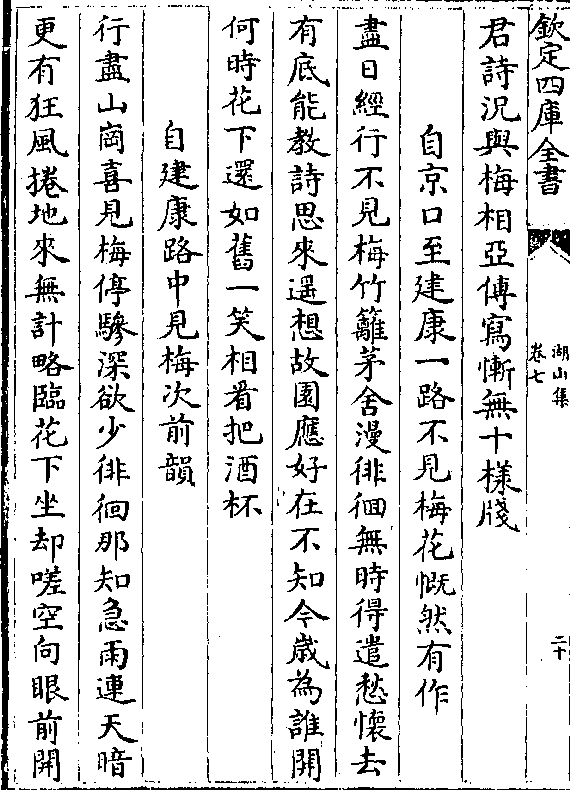 欽定四庫全書
湖山集
卷七
二十
君詩況與梅相亞傳寫慚無十樣牋
自京口至建康一路不見梅花慨然有作
盡日經行不見梅竹籬茅舍漫徘徊無時得遣愁懷去
有底能教詩思來遥想故園應好在不知今嵗為誰開
何時花下還如舊一笑相看把酒杯
自建康路中見梅次前韻
行盡山崗喜見梅停驂深欲少徘徊那知急雨連天暗
更有狂風捲地來無計略臨花下坐却嗟空向眼前開